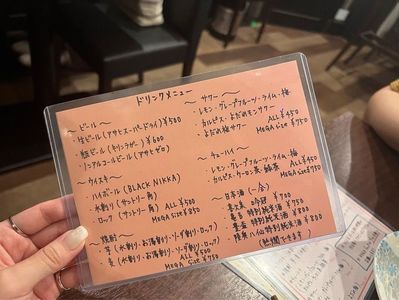 ドリンクメニュー
〜ビール〜
・生ビール(アサヒスーパードライ) ¥500
・瓶ビール(キリンラガー) ¥600
・ノンアルコールビール(アサヒゼロ)
〜ウイスキー〜
・ハイボール(BLACK NIKKA)
・水割り(サントリー角) ALL ¥500
・ロック(サントリー角) MEGA Size ¥850
〜焼酎〜
・芋(水割り・お湯割り・ソーダ割り・ロック)
・麦(水割り・お湯割り・ソーダ割り・ロック)
ALL ¥500
MEGA Size ¥750
〜サワー〜
・レモン・グレープフルーツ・ライム・梅
・カルピス・よだれのモンサワー
・よだれ梅サワー ALL ¥450
MEGA SIZE ¥750
〜チューハイ〜
・レモン・グレープフルーツ・ライム・梅
・カルピス・ウーロン茶・緑茶 ALL ¥450
MEGA Size ¥750
〜日本酒(一合)
¥700
特別純米酒 ¥750
特別純米酒 ¥800
・陸奥八仙特別純米酒 ¥800
(熱燗できます)